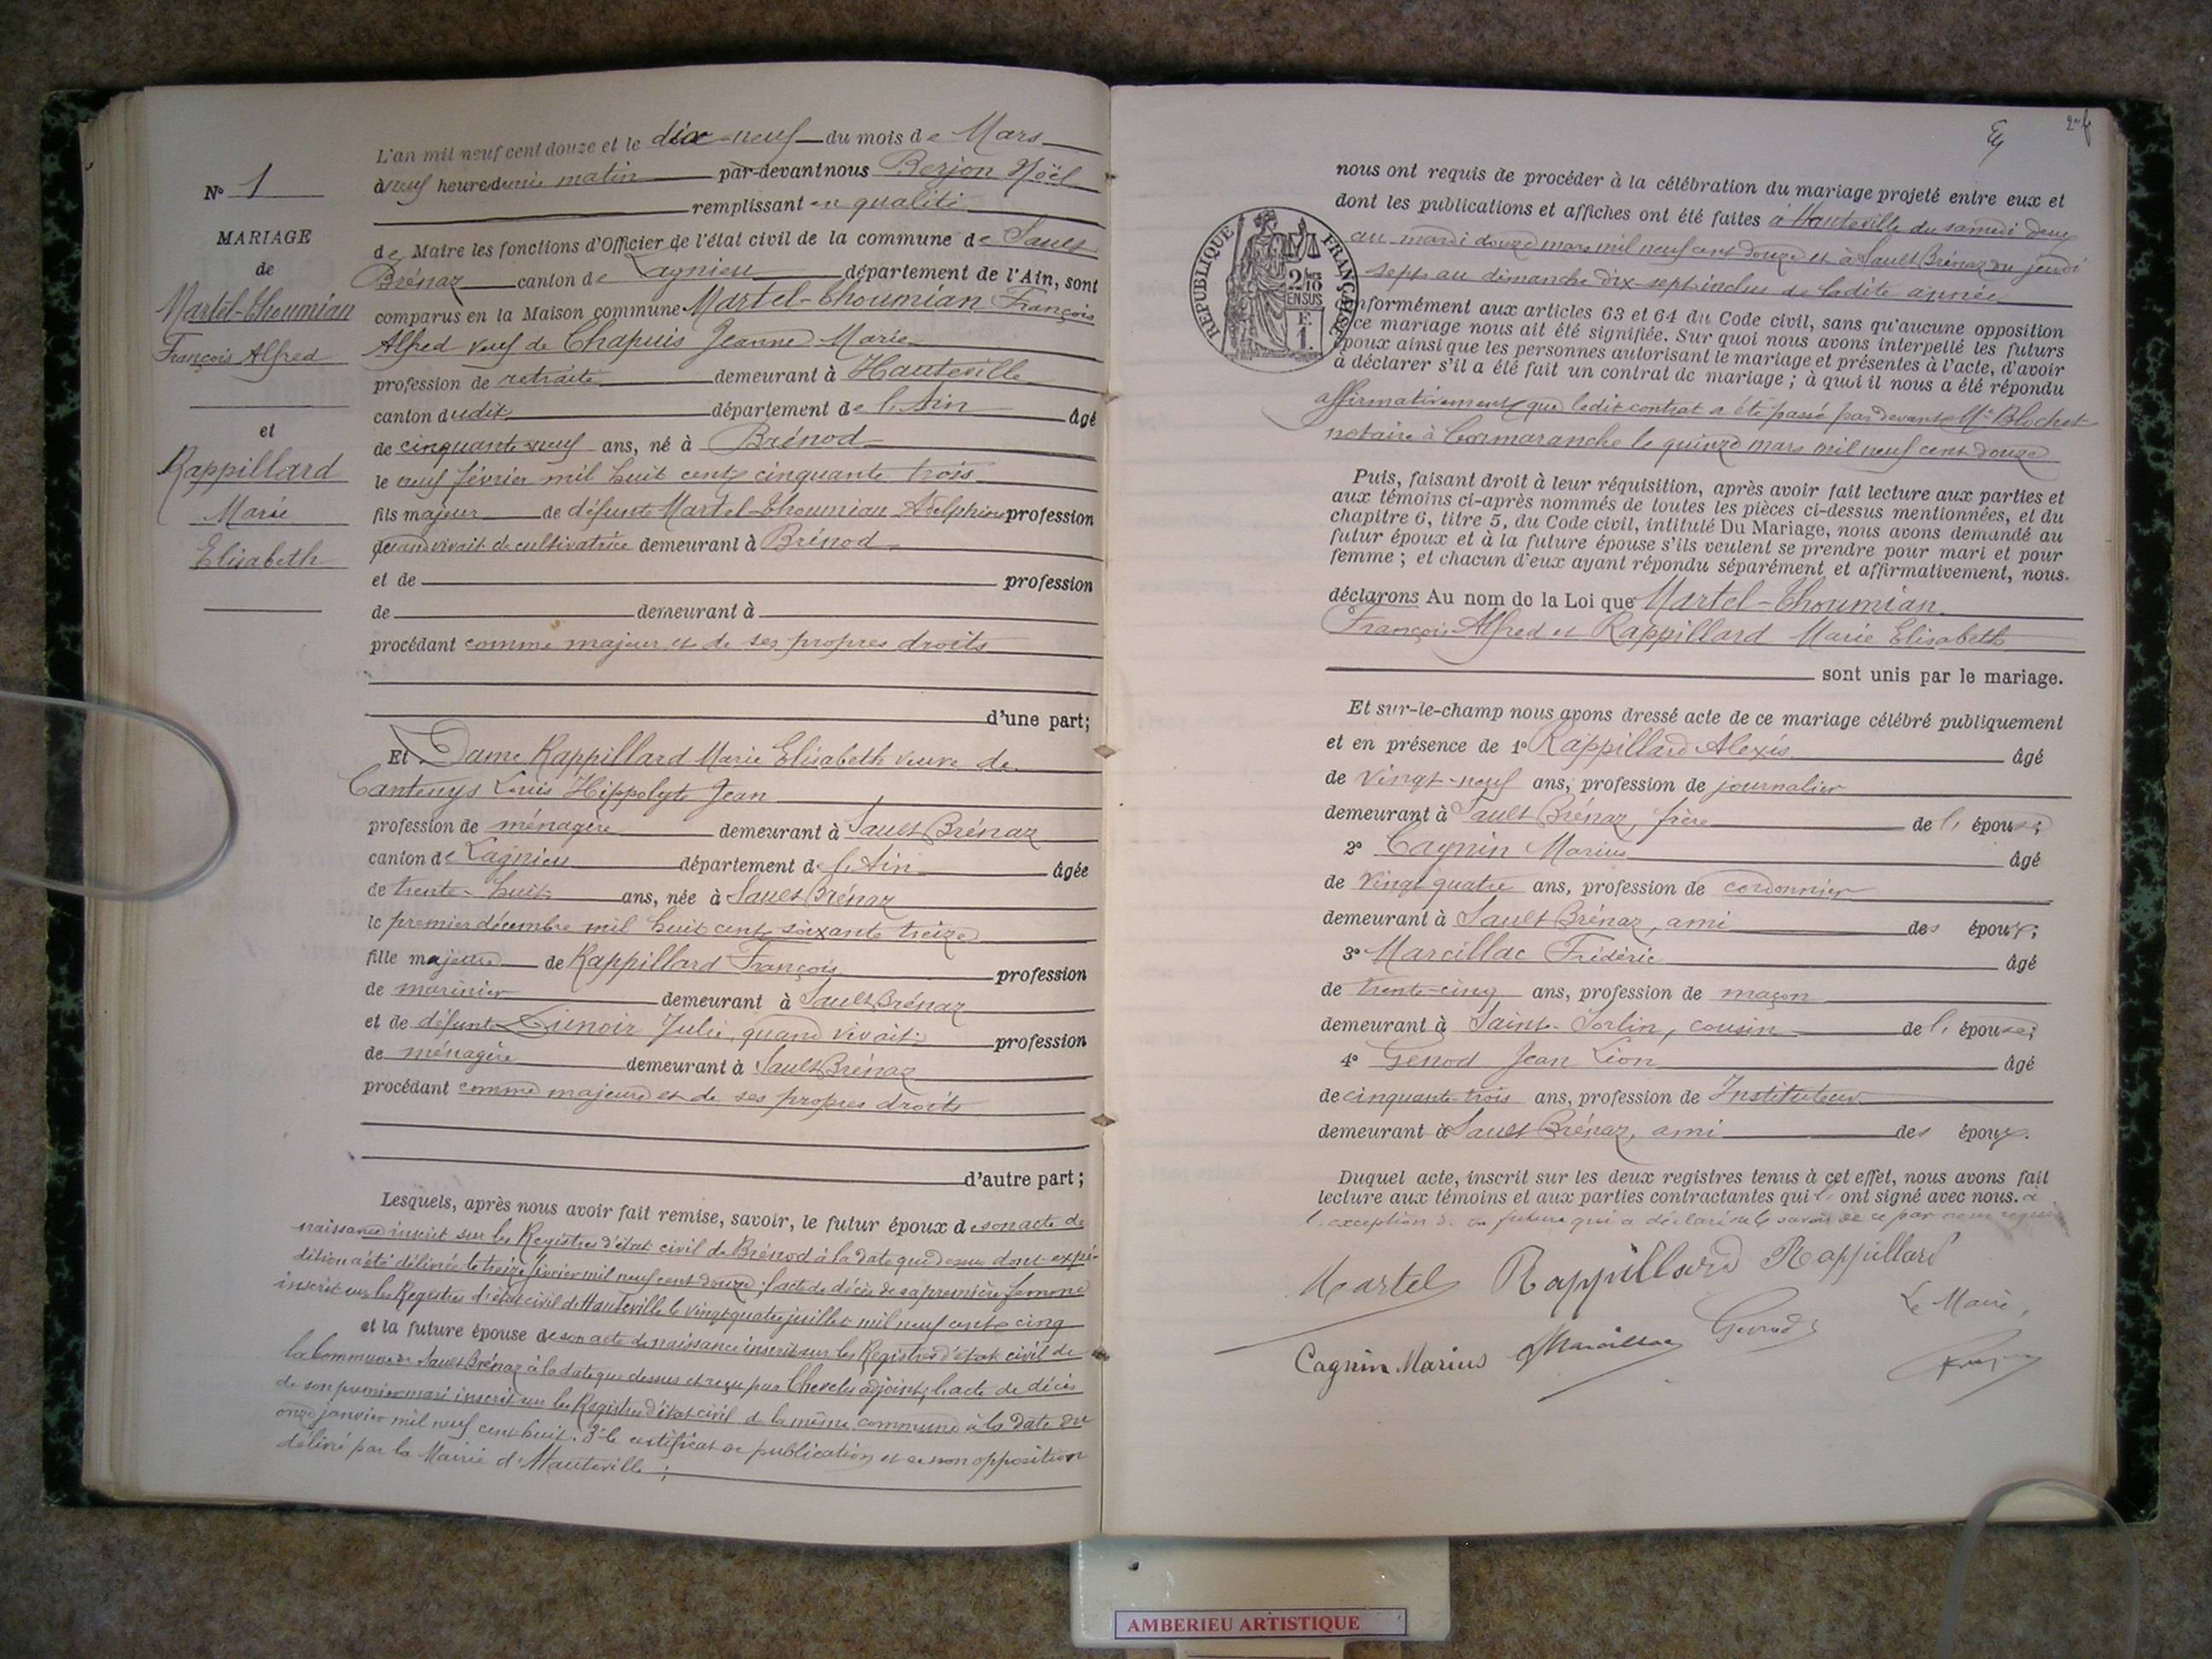 N° 1
MARIAGE
de
Martel-Thoumian
François Alfred
et
Rappillard
Marie
Elisabeth
L'an mil neuf cent douze et le dix-neuf du mois de Mars
à neuf heures du matin par-devant nous Berjon Noël
remplissant en qualité
de Maire les fonctions d'Officier de l'état civil de la commune de Sault
Brénaz canton de Lagnieu département de l'Ain, sont
comparus en la Maison commune Martel-Thoumian François
Alfred veuf de Chapuis Jeanne Marie
profession de retraité demeurant à Hauteville
canton dudit département de l'Ain âgé
de cinquante-neuf ans, né à Brénod
le neuf février mil huit cent cinquante trois
fils majeur de défunte Martel-Thoumian Adelphine profession
quand vivait de cultivatrice demeurant à Brénod
et de profession
de demeurant à
procédant comme majeur et de ses propres droits
d'une part;
Et Dame Rappillard Marie Elisabeth veuve de
Cantenys Louis Hippolyte Jean
profession de ménagère demeurant à Sault Brénaz
canton de Lagnieu département de l'Ain âgée
de trente-huit ans, née à Sault Brénaz
le premier décembre mil huit cent soixante treize
fille majeure de Rappillard François profession
de marinier demeurant à Sault Brénaz
et de défunte Lienoir Julie, quand vivait profession
de ménagère demeurant à Sault Brénaz
procédant comme majeure et de ses propres droits
d'autre part;
Lesquels, après nous avoir fait remise, savoir, le futur époux de son acte de
naissance inscrit sur les Registres d'état civil de Brénod à la date que dessus dont expé-
dition a été délivrée le treize février mil neuf cent douze; l'acte de décès de sa première femme
inscrit sur les Registres d'état civil de Hauteville le vingt quatre juillet mil neuf cent cinq
et la future épouse de son acte de naissance inscrit sur les Registres d'état civil de
la commune de Sault Brénaz à la date que dessus et reçu par Chevelu adjoint; l'acte de décès
de son premier mari inscrit sur les Registres d'état civil de la même commune à la date du
onze janvier mil neuf cent huit. 3° le certificat de publication et de non opposition
délivré par la Mairie d'Hauteville;
2
nous ont requis de procéder à la célébration du mariage projeté entre eux et
dont les publications et affiches ont été faites à Hauteville du samedi deux
au mardi douze mars mil neuf cent douze et à Sault Brénaz du jeudi
sept au dimanche dix-sept inclus de ladite année
REPUBLIQUE FRANÇAISE
2/10
EN SUS
F.
1.
nformément aux articles 63 et 64 du Code civil, sans qu'aucune opposition
ce mariage nous ait été signifiée. Sur quoi nous avons interpellé les futurs
époux ainsi que les personnes autorisant le mariage et présentes à l'acte, d'avoir
à déclarer s'il a été fait un contrat de mariage; à quoi il nous a été répondu
affirmativement que ledit contrat a été passé par devant Me Blochet
notaire à Cormaranche le quinze mars mil neuf cent douze
Puis, faisant droit à leur réquisition, après avoir fait lecture aux parties et
aux témoins ci-après nommés de toutes les pièces ci-dessus mentionnées, et du
chapitre 6, titre 5, du Code civil, intitulé Du Mariage, nous avons demandé au
futur époux et à la future épouse s'ils veulent se prendre pour mari et pour
femme; et chacun d'eux ayant répondu séparément et affirmativement, nous
déclarons Au nom de la Loi que Martel-Thoumian
François Alfred et Rappillard Marie Elisabeth
sont unis par le mariage.
Et sur-le-champ nous avons dressé acte de ce mariage célébré publiquement
et en présence de 1° Rappillard Alexis âgé
de vingt-neuf ans, profession de journalier
demeurant à Sault Brénaz, frère de l'épouse;
2° Cagnin Marius âgé
de vingt quatre ans, profession de cordonnier
demeurant à Sault Brénaz, ami des époux;
3° Marcillac Frédéric âgé
de trente-cinq ans, profession de maçon
demeurant à Saint-Sorlin, cousin de l'épouse;
4° Genod Jean Léon âgé
de cinquante-trois ans, profession de Instituteur
demeurant à Sault Brénaz, ami des époux.
Duquel acte, inscrit sur les deux registres tenus à cet effet, nous avons fait
lecture aux témoins et aux parties contractantes qui l' ont signé avec nous. à
l'exception de la future qui a déclaré ne le savoir de ce par nous requise
Martel Rappillard Rappillard
Le Maire,
Cagnin Marius Marcillac Genod
AMBERIEU ARTISTIQUE